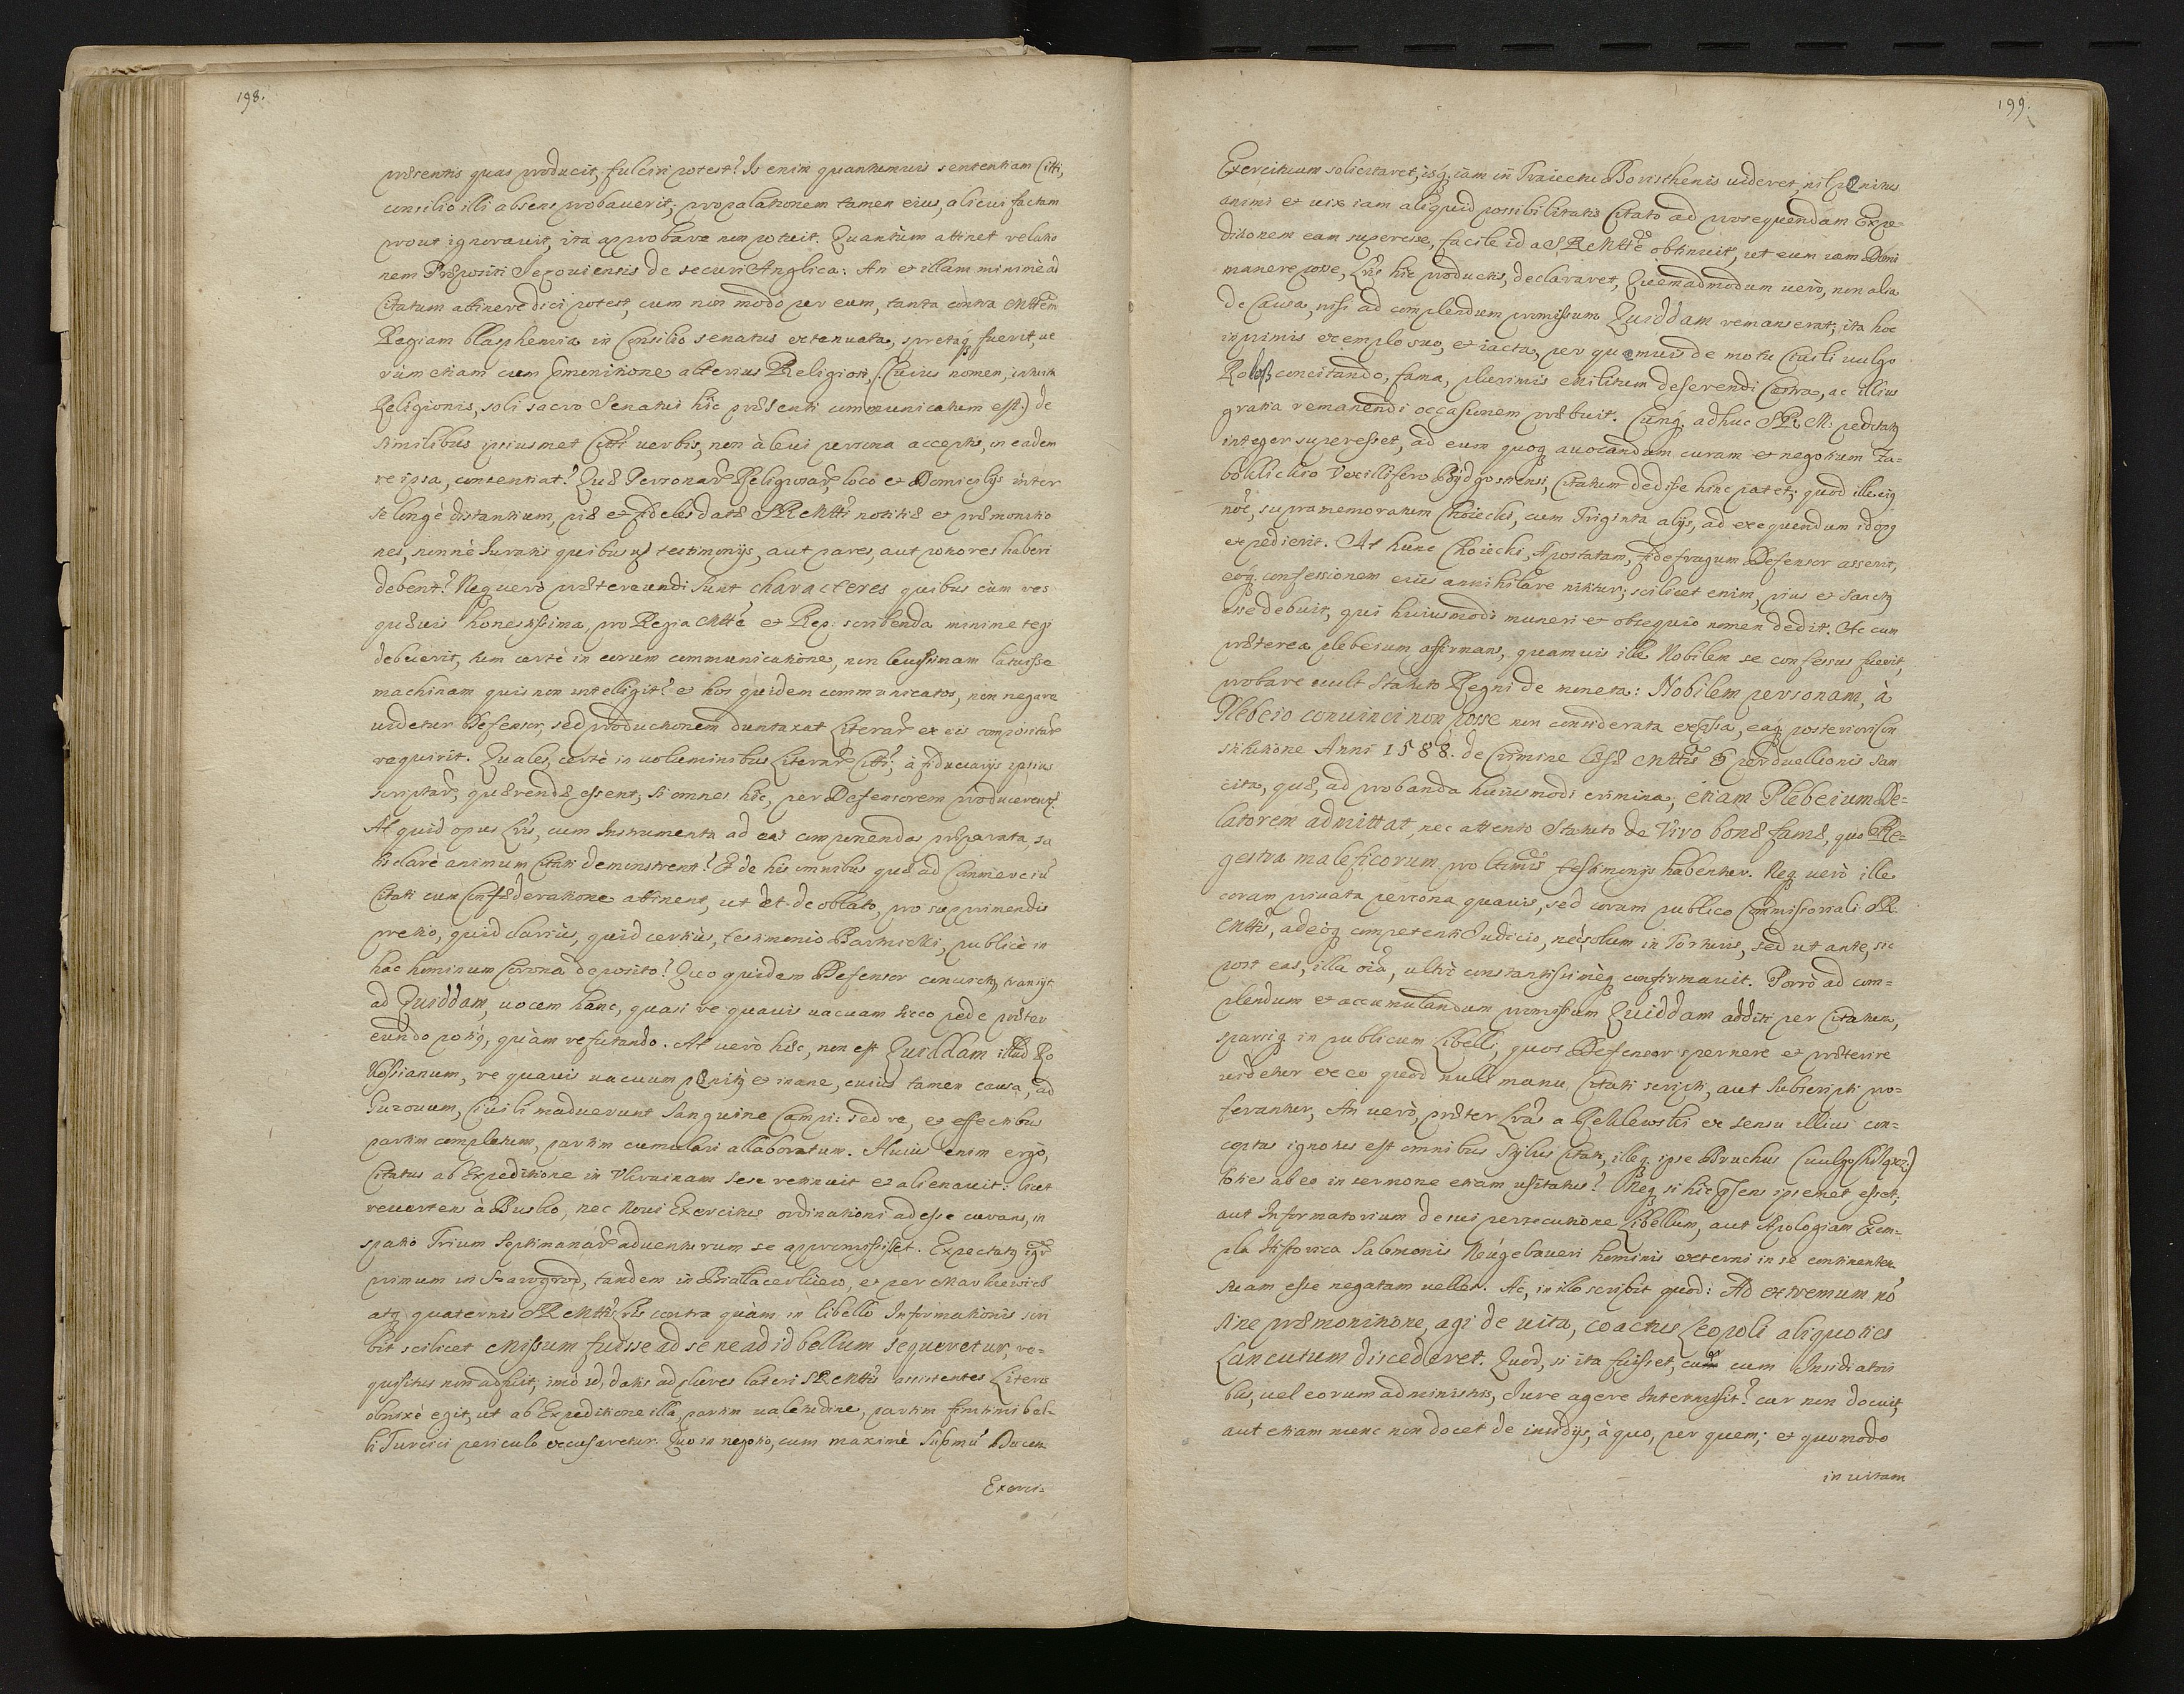 198.
præsentis quas producit, fulciri potest? Is enim quantumuis sententiam Citti,
consilio illi absens probauerit; propalationem tamen eius, alicui factam
prout ignorauit, ita approbare non potuit. Quantùm attinet relatio
nem Præpositi Segouiensis de securi Anglica: An et illam minimè ad
Citatum attinere dici potest, cum non modo per eum, tanta contra Mttem
Regiam blasphemia in Consilio senatus extenuata, spretaq fuerit, ue
rùm etiam cum Comunitione alterius Religiosi, (: Cuius nomen, intuitu
Religionis, soli sacro Senatui hîc præsenti communicatum est:) de
similibus ipsiusmet Citti uerbis, non à leui persona acceptis, in eadem
re ipsa, consentiat? Quæ Personar Religiosar, loco et Domicilijs inter
se longè distantium, piæ et fideles datæ SRMtti notitiæ et præmonitio
nes, nonnè Iuratis quibusuis testimonijs, aut pares, aut potiores haberi
debent? Neq uerò prætereundi sunt characteres quibus cùm res
quæuis honestissima, pro Regia Mtte et Rep: scribenda minime tegi
debuerit, tum certè in eorum communicatione, non leuissimam latuisse
machinam quis non intelligit? et hos quidem communicatos, non negare
uidetur Defensor, sed productionem duntaxat Literar ex eis compositar
requirit. Quales certè in uoluminibus Literar Citti, à fiduciarijs ipsius
scriptar, quærendæ essent, si omnes hîc, per Defensorem producerent.
At quid opus Lris, cum Instrumenta ad eas componendas præparata, sa
tis clarè animum Citati demonstrent? Et de his omnibus quæ ad Commerciu
Citati cum Confæderatione attinent, ut et de oblato, pro supprimendis
pretio, quid clariùs, quid certiùs, testimonio Bartnicki, publicè in
hac hominum Corona deposito? Quo quidem Defensor conuictq, transijt
ad Quiddam, uocem hanc, quasi re quauis uacuam sicco pede præter
eundo potiq, quàm refutando. At uerò hîc, non est Quiddam illud Ro
kossianum, re quauis uacuum penitq et inane, cuius tamen causa, ad
Guzouum, Ciuili maduerunt sanguine Campi: sed re, et effectibus
partim completum, partim cumulari allaboratum. Huius enim ergò,
Citatus ab Expeditione in Vkrainam sese retinuit et alienauit: licet
reuertens à Busko, nec Noui Exercitus ordinationi adesse curans, in
spatio Trium Septimanar aduenturum se appromisisset. Expectatq igr
primum in Stawgrod, tandem in Biallacerkiew, et per Markiewicz
atq quaternis SRMttis Lris contra quàm in libello Informationis scri
bit scilicet Missum fuisse ad se ne ad id bellum sequeretur, re-
quisitus non adfuit, imò id, datis ad plures lateri SRMttis assistentes Literis
obnixè egit, ut ab Expeditione illa, partim ualetudine, partim finitimi bel-
li Turcici periculo excusaretur. Quo in negotio, cum maximè Supmu Ducem
Exerci-
199.
Exercituum solicitaret, isq iam in Traiectu Boristhenis uideret, nil penitus
animi et uix iam aliquid possibilitatis Citato ad prosequendam Expe-
ditionem eam superesse, facile id a SRMtte obtinuit, ut eum iam Domi
manere posse, Lris hîc productis, declararet, Quemadmodum uerò, non alia
de Causa, nisi ad complendum promissum Quiddam remanserat; ita hoc
inprimis exemplo suo, et iacta, per quemuis de motu Ciuili uulgo
Rokosz concitando, fama, plurimis Militum deserendi Castra, ac illius
gratia remanendi occasionem præbuit. Cumq adhuc SRM: peditatq
integer superesset, ad eum quoq auocandum curam et negotium Za-
boklickio Vexillifero Bydgostiensi, Citatum dedisse hinc patet, quod ille eiq
noie, supramemoratum Choiecki, cum Triginta alijs, ad exequendum id opq
expedierit. At hunc Choiecki, Apostatam, fidefragum Defensor asserit,
eoq confessionem eius annihilare nititur; scilicet enim, pius et sanctq
esse debuit, qui huiusmodi muneri et obsequio nomen dedit. Ac eum
præterea plebeium affirmans, quamuis ille Nobilem se confessus fuerit,
probare uult Statuto Regni de moneta: Nobilem personam, à
Plebeio conuinci non posse non considerata expssa, eaq posteriori Con
stitutione Anni 1588. de Crimine læsæ Mttis et perduellionis san
cita, quæ, ad probanda huiusmodi crimina, etiam Plebeium De-
latorem admittat, nec attento Statuto de Viro bonæ famæ, quo Re-
gestra maleficorum pro ltimis testimonijs habentur. Neq uerò ille
coram priuata persona quauis, sed coram publico Commissoriali SR
Mttis, adeoq competenti Iudicio, nec solum in Torturis, sed ut ante, sic
post eas, illa oia, ultrò constantissimèq confirmauit. Porrò ad com-
plendum et accumulandum promissum Quiddam additi per Citatum,
sparsiq in publicum Libelli, quos Defensor spernere et præterire
uidetur ex eo quod nulli manu Citati scripti, aut subscripti pro-
ferantur, An uerò, præter Lras a Peklewski ex sensu illius con-
ceptas ignotus est omnibus Stylus Citati, illeq ipse Bruchus
toties ab eo in sermone etiam usitatus? Neq si hîc psens ipsemet esset,
aut Informatorium de sui persecutione Libellum, aut Apologiam Exem-
pla Historica Salomonis Neugebaueri hominis externi in se continentem
suam esse negatam uellet. At, in illo scribit quod: Ad extremum no
sine præmonitione, agi de uita, coactus Leopoli aliquoties
Lancutum discederet. Quod, si ita fuisset, cur cum Insidiatori
bus, uel eorum administris, Iure agere Intermisit? cur non docuit,
aut etiam nunc non docet de insidijs, à quo, per quem; et quomodo
in uitam